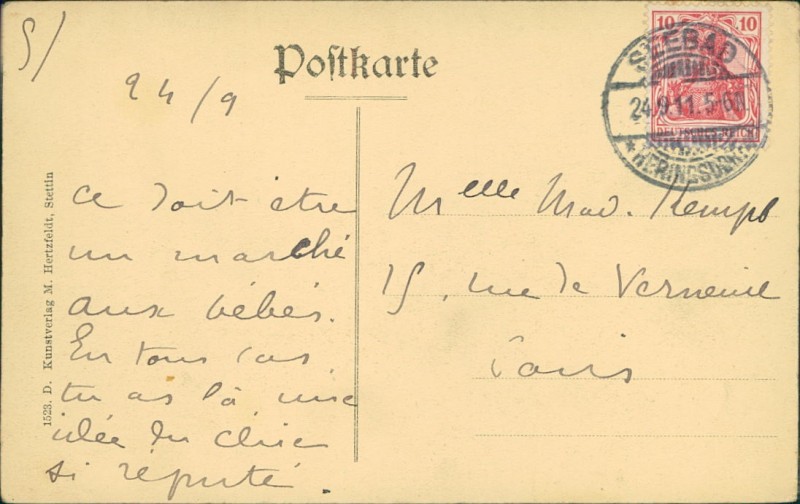 5/
Postkarte
24/9
10 10
DEUTSCHES REICH
SEEBAD
24.9.11.5-6N.
* HERINGSDORF *
Ce doit être
un marché
aux bébés.
En tous cas
tu as là une
idée du chic
si réputé.
Melle Mad. Kempf
15, rue de Verneuil
Paris
1523. D. Kunstverlag M. Hertzfeldt, Stettin